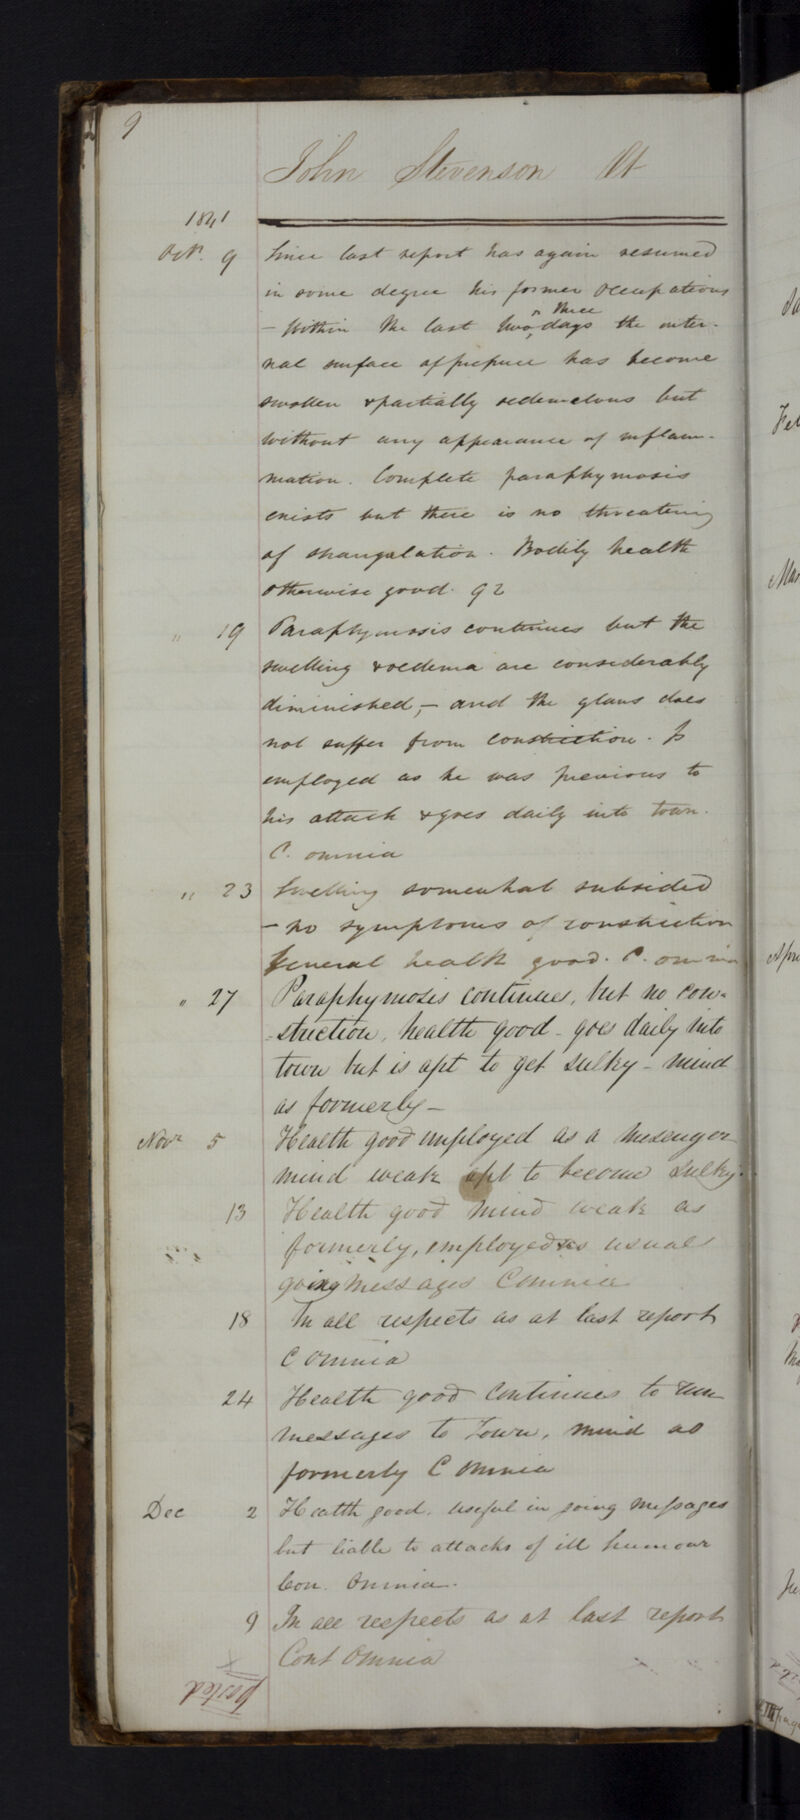 9
John Stevenson
1841
Octr. 9 Since last report has again resumed
in some degree his former occupations
— Within the last two three days the inter-
nal surface of prepuce has become
swollen & partially oedematous but
without any appearance of inflam-
mation. Complete paraphymosis
exists but there is no threatening
of strangulation. Bodily health
otherwise good.
" 19 Paraphymosis continues but the
swelling & oedema are considerably
diminished, — and the glans does
not suffer from constriction. Is
employed as he was previous to
his attack & goes daily into town.
C. omnia
" 23 Swelling somewhat subsided
— no symptoms of constriction
General health good. C. omnia
" 27 Paraphymosis continues, but no con-
-struction, health good - goes daily into
town but is apt to get sulky - mind
as formerly —
Novr 5 Health good employed as a mesenger
mind weak apt to become sulky.
13 Health good mind weak as
formerly, employed as usual
going messages C omnia
18 In all respects as at last report
C omnia
24 Health good continues to run
messages to Town, mind as
formerly C Omnia
Dec 2 Health good. useful in going messages
but liable to attacks of ill humour
Con. Omnia.
9 In all respects as at last report
Cont Omnia
posted